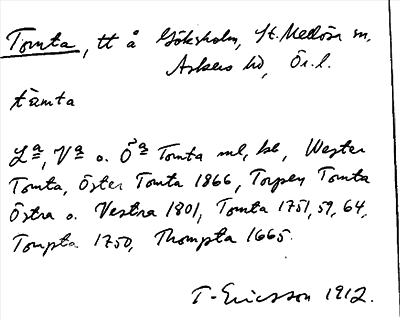 Tomta, tt å Göksholm, St. Mellösa sn,
Askers hd, Ör. l.
tåmta
La, Va o. Öa Tomta ml, bl, Wester
Tomta, Öster Tomta 1866, Torpen Tomta
Östra o. Vestra 1801, Tomta 1751, 59, 64,
Tompta 1750, Thompta 1665.
T. Ericsson 1912.